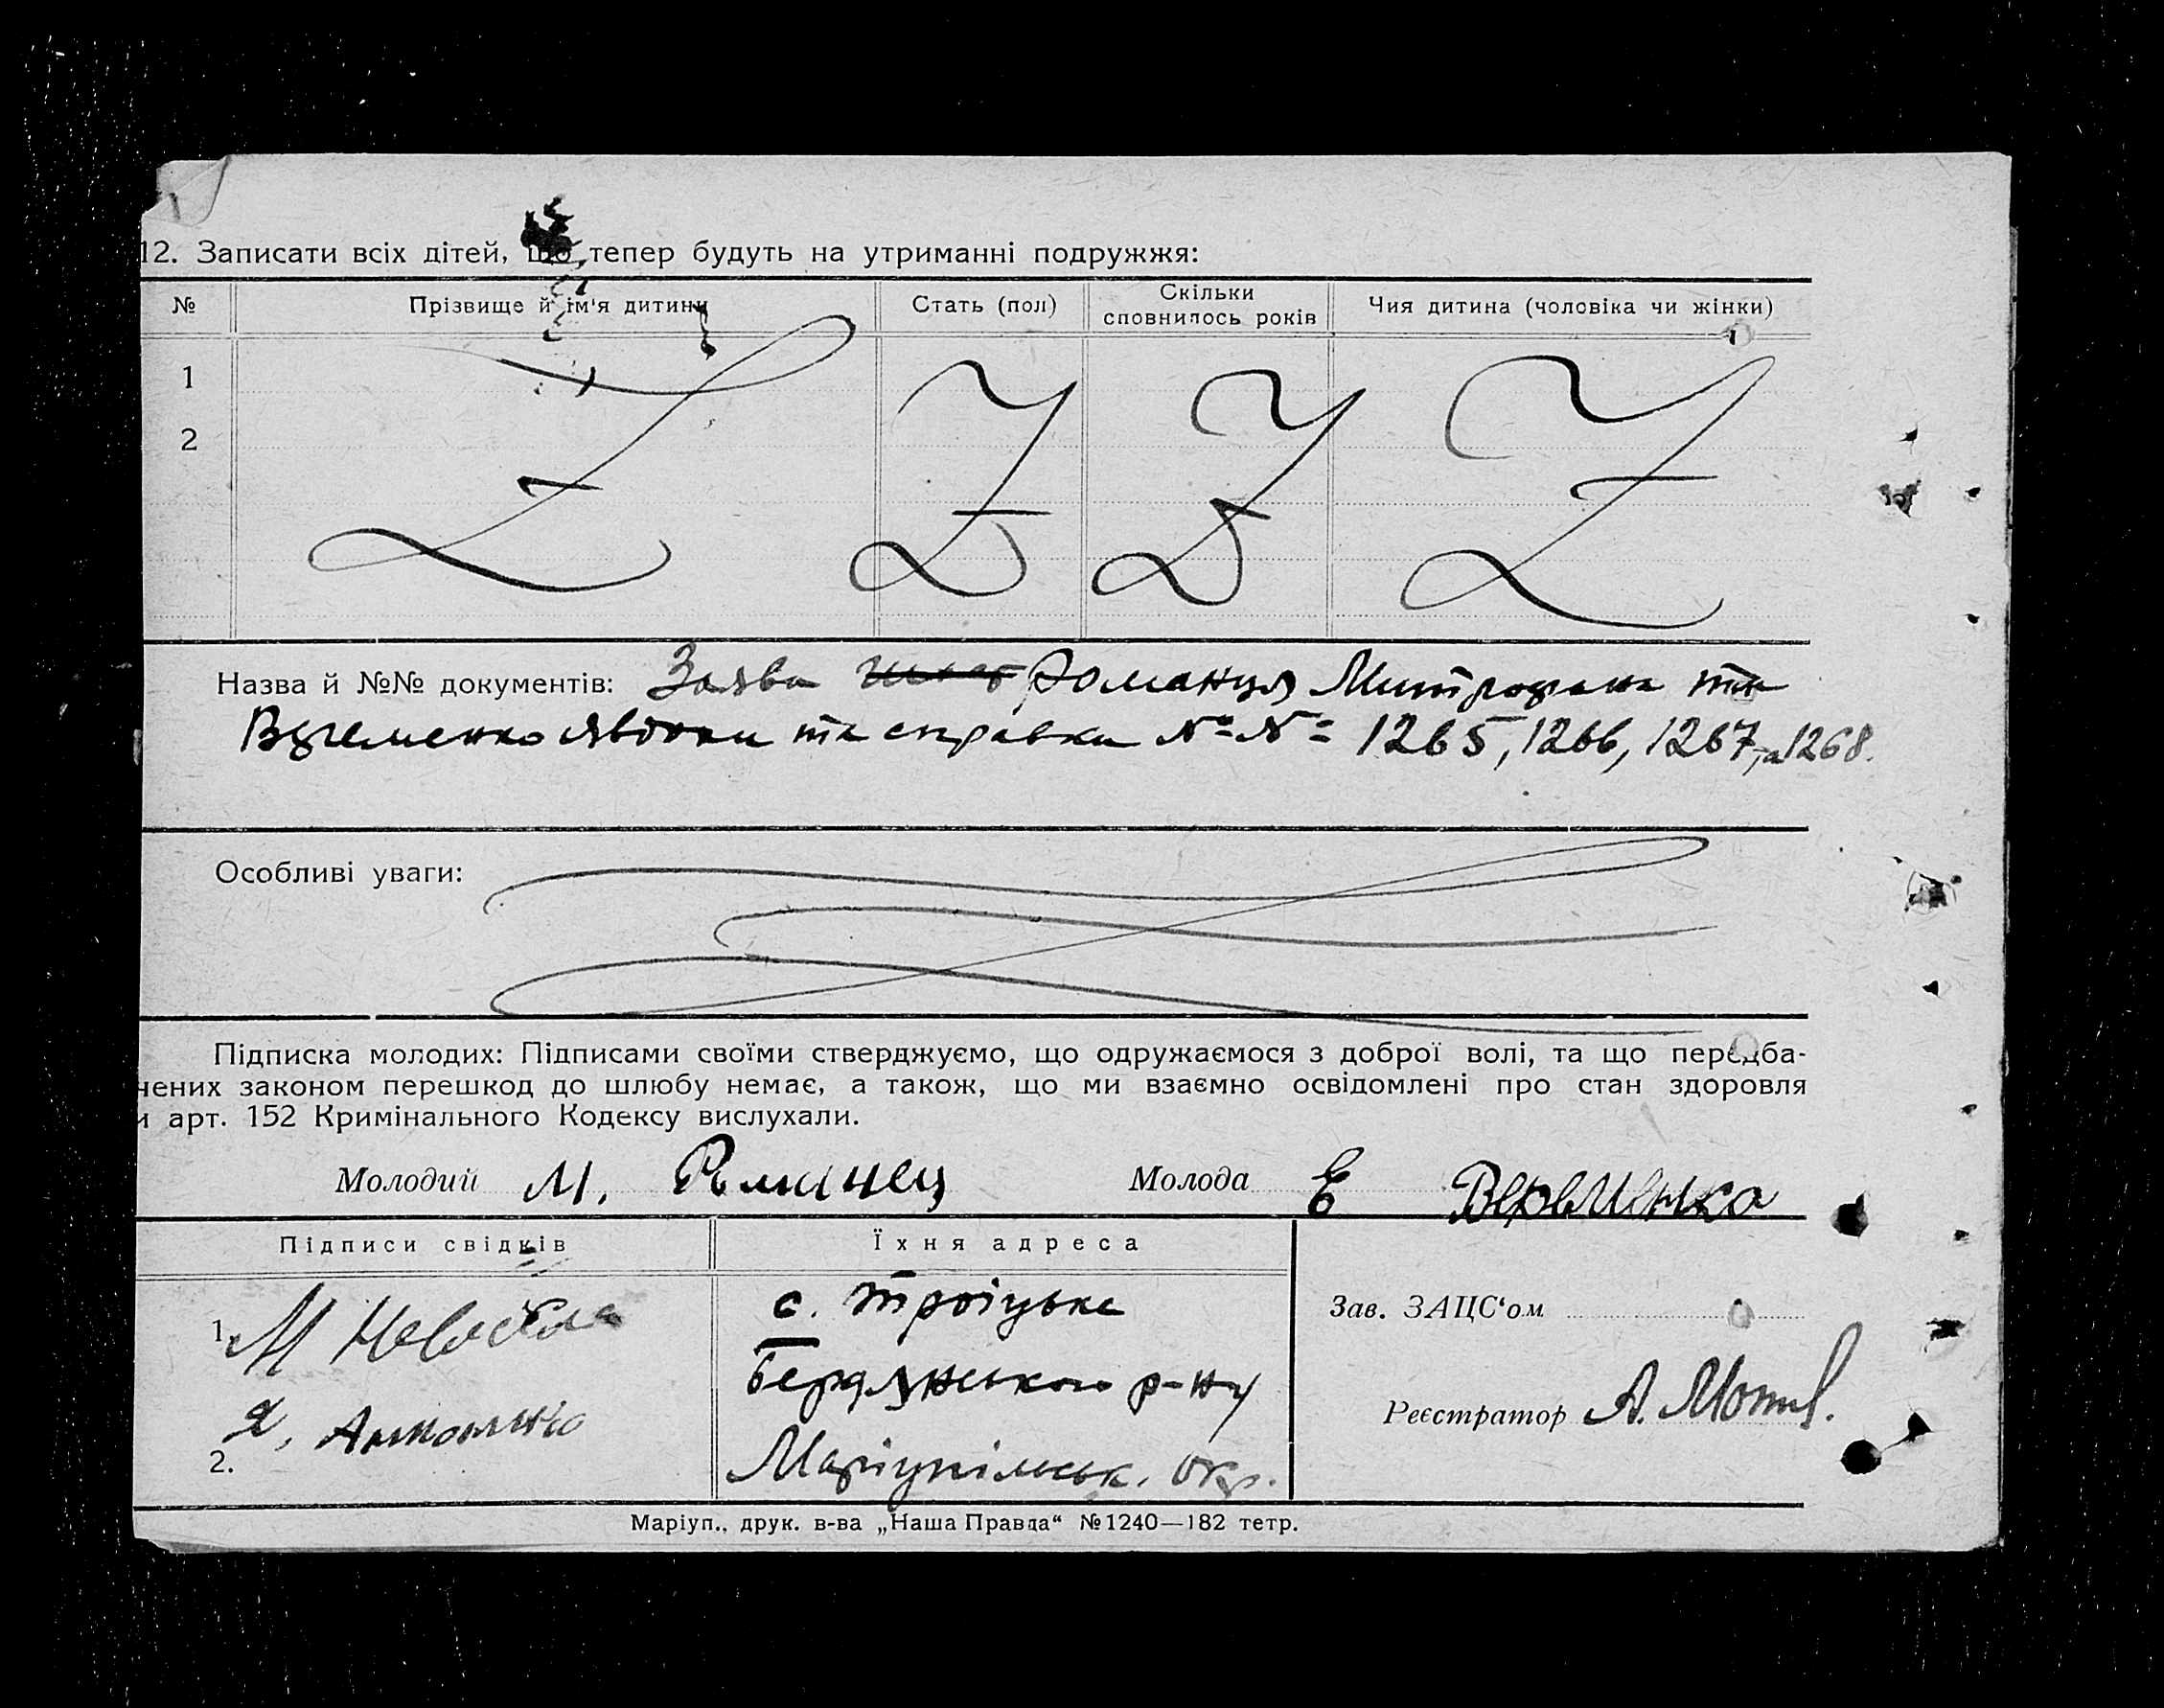 12. Записати всіх дітей, що тепер будуть на утриманні подружжя:
№ Прізвище й ім'я дитини Стать (пол) Скільки сповнилось років Чия дитина (чоловіка чи жінки)
1
2
Назва й №№ документів: Заява Романця Митрофана та
Явдохи та справки №№ 1265, 1266, 1267, а 1268.
Особливі уваги:
Підписка молодих: Підписами своїми стверджуємо, що одружаємося з доброї волі, та що передба-
чених законом перешкод до шлюбу немає, а також, що ми взаємно освідомлені про стан здоровля
й арт. 152 Кримінального Кодексу вислухали.
Молодий М. Романец Молода Е Веременко
Підписи свідків Їхня адреса
1. М
с. Троіцьке
Бердянського р-ну
Маріупільськ. окр.
2.
Зав. ЗАЦС'ом
Реєстратор А.
Маріуп., друк. в-ва „Наша Правда“ №1240—182 тетр.